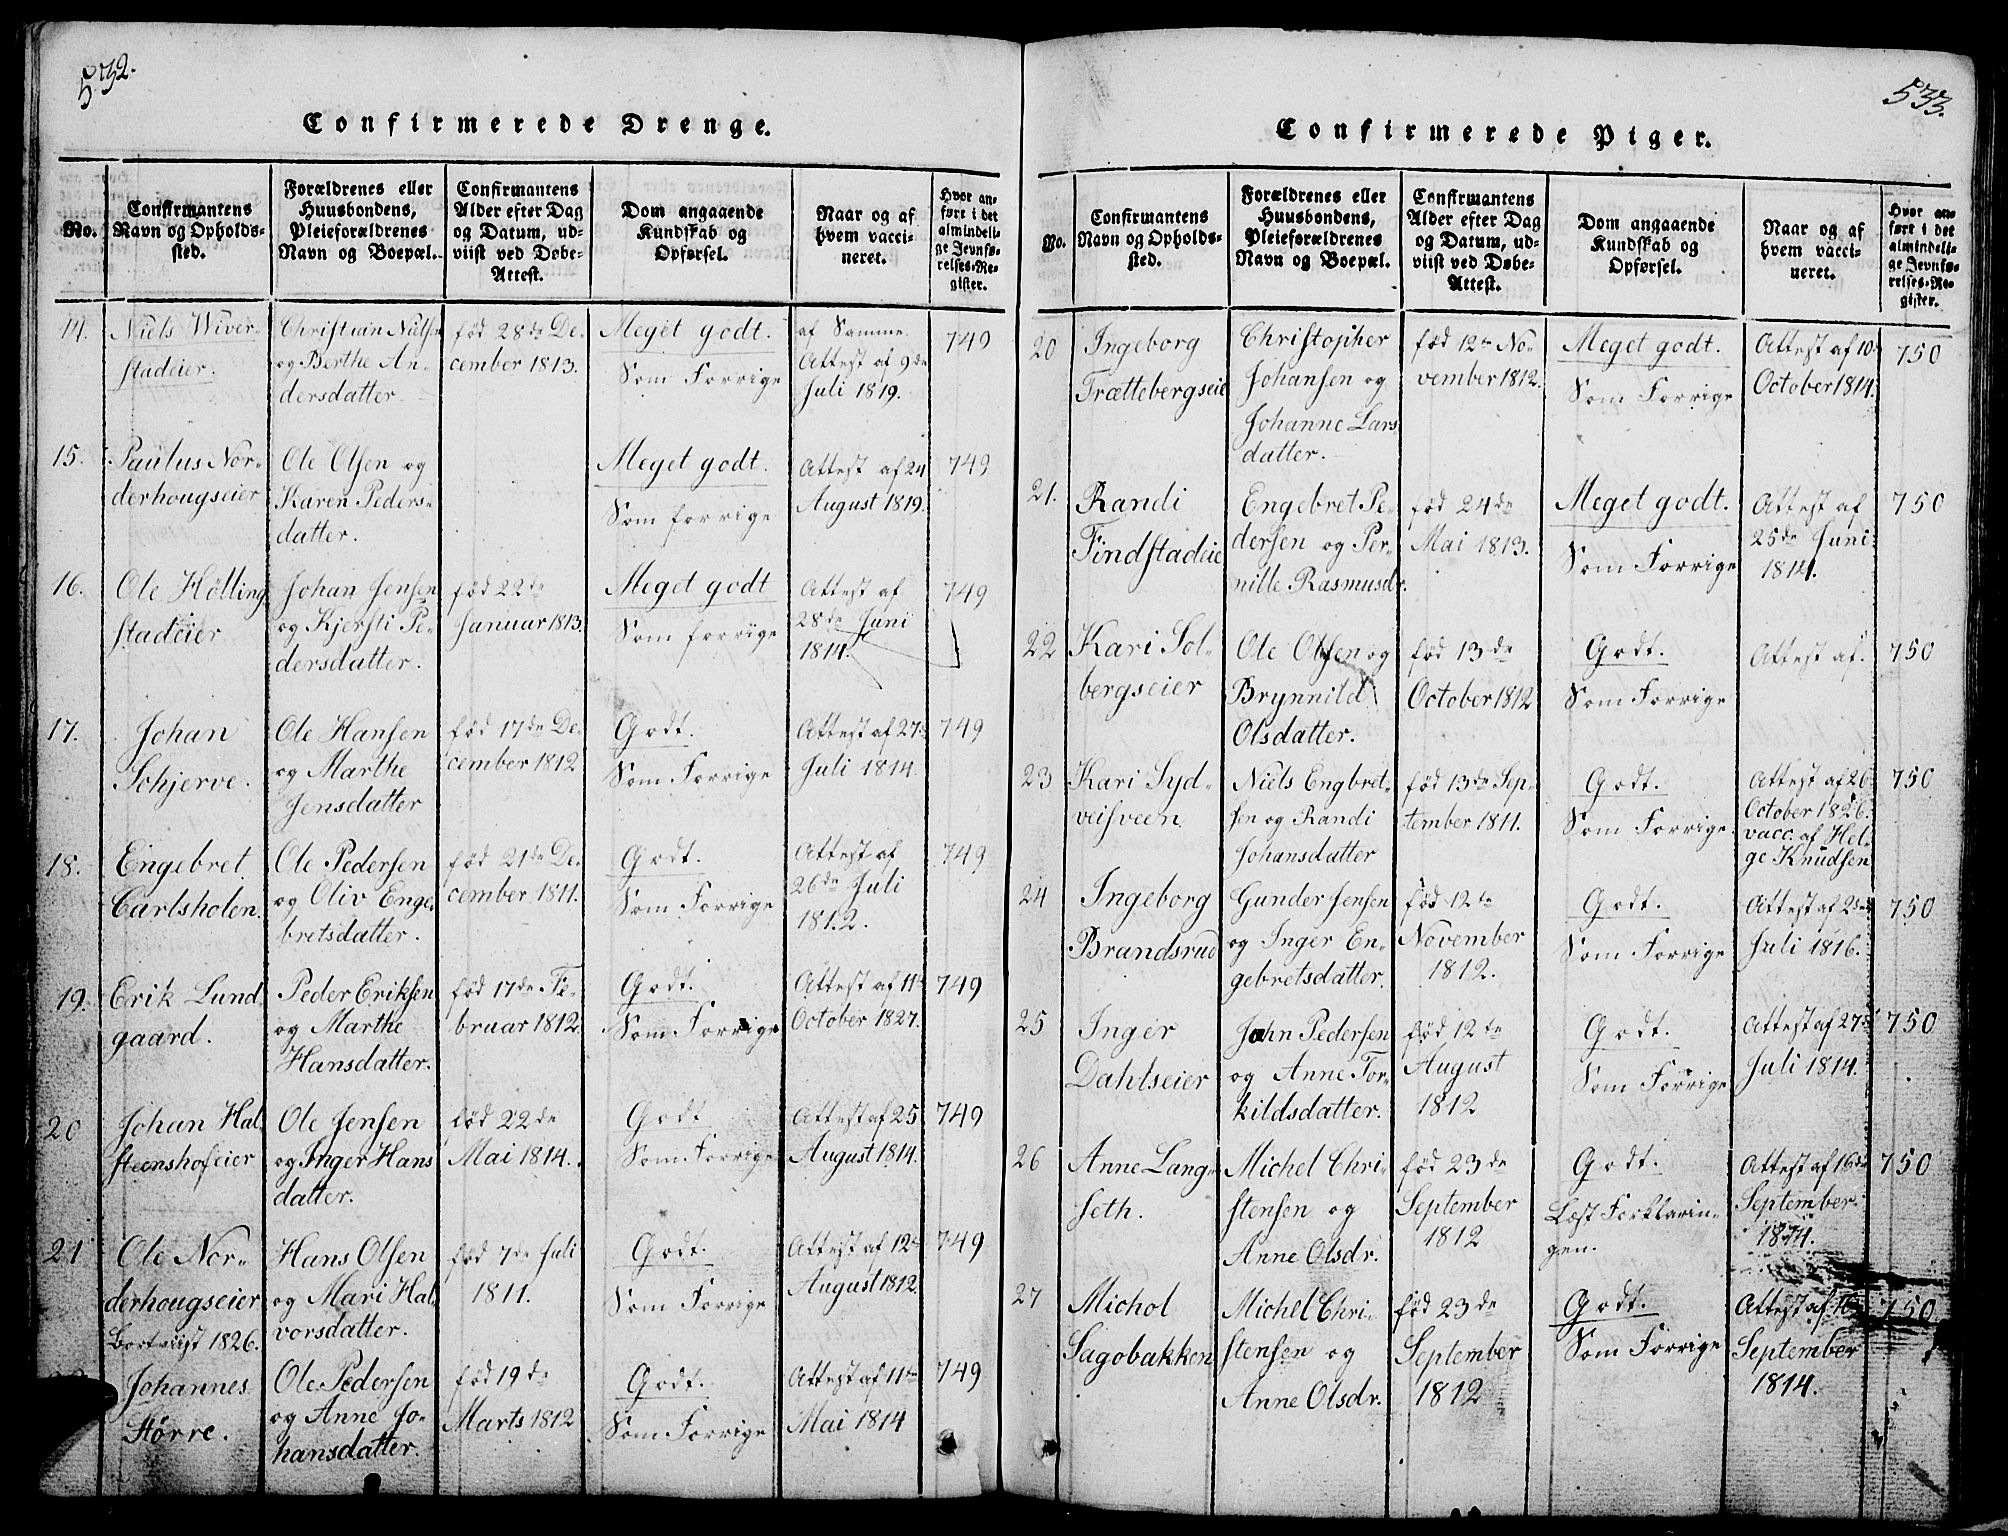 532.
Confirmerede Drenge.
No.
Confirmantens
Navn og Opholds-
sted.
Forældrenes eller
Huusbondens,
Pleieforældrenes
Navn og Boepæl.
Confirmantens
Alder efter Dag
og Datum, ud-
viist ved Døbe-
Attest.
Dom angaaende
Kundskab og
Opførsel.
Naar og af
hvem vacci-
neret.
Hvor an-
ført i det
almindeli-
ge Jevnfø-
relses-Re-
gister.
14.
Niels Wiver-
stadeier.
Christian Nilsen
og Berthe An-
dersdatter
fød 28de De-
cember 1813.
Meget godt.
Som Forrige
af Samme.
Attest af 9de
Juli 1819.
749
15.
Paulus Nor-
derhougseier
Ole Olsen og
Karen Peders-
datter.
Meget godt.
Som forrige
Attest af 24
August 1819.
749
16.
Ole Hølling
stadeier
Johan Jensen
og Kjersti Pe-
dersdatter.
fød 22de
Januar 1813.
Meget godt
Som forrige
Attest af
28de Juni
1814.
749
17.
Johan
Schjerve.
Ole Hansen
og Marthe
Jensdatter
fød 17de De-
cember 1812
Godt.
Som Forrige
Attest af 27
Juli 1814.
749
18.
Engebret
Carlsholen.
Ole Pedersen
og Oliv Enge-
bretsdatter.
fød 21de De-
cember 1811.
Godt.
Som Forrige
Attest af
26de Juli
1812.
749
19.
Erik Lund
gaard.
Peder Eriksen
og Marthe
Hansdatter.
fød 17de Fe-
bruar 1812.
Godt.
Som Forrige
Attest af 11te
October 1827.
749
20
Johan Hal
steenshofeier
Ole Jensen
og Inger Hans
datter.
fød 22de
Mai 1814.
Godt
Som Forrige
Attest af 25
August 1814.
749
21
Ole Nor-
derhougseier
Bortviist 1826.
Hans Olsen
og Mari Hal-
vorsdatter.
fød 7de Juli
1811.
Godt.
Som Forrige
Attest af 12te
August 1812.
749
Johannes
Større.
Ole Pedersen
og Anne Jo-
hansdatter.
fød 19de
Marts 1812
Godt.
Som Forrige
Attest af 11te
Mai 1814
749
533.
Confirmerede Piger.
No.
Confirmantens
Navn og Opholds-
sted.
Forældrenes eller
Huusbondens,
Pleieforældrenes
Navn og Boepæl.
Confirmantens
Alder efter Dag
og Datum, ud-
viist ved Døbe-
Attest.
Dom angaaende
Kundskab og
Opførsel.
Naar og af
hvem vacci-
neret.
Hvor an-
ført i det
almindeli-
ge Jevnfø-
relses-Re-
gister.
20
Ingeborg
Trættebergseie
Christopher
Johansen og
Johanne Lars
datter.
fød 12te No-
vember 1812.
Meget godt.
Som Forrige
Attest af 10
October 1814.
750
21.
Randi
Findstadeie
Engebret Pe-
dersen og Per-
nille Rasmusdr.
fød 24de
Mai 1813.
Meget godt.
Som Forrige
Attest af
25de Juni
1814.
750
22
Kari Sol-
bergseier
Ole Olsen og
Brynnild
Olsdatter.
fød 13de
October 1812
Godt.
Som Forrige
Attest af.
750
23
Kari Syd-
veisveen
Niels Engbret-
sen og Randi
Johansdatter
fød 13de Sep-
tember 1811.
Godt.
Som Forrige.
Attest af 26
October 1826.
vacc. af Hel-
ge Knudsen
750
24
Ingeborg
Brandsrud
Gunder Jensen
og Inger En-
gebretsdatter.
fød 12te
November
1812.
Godt.
Som Forrige
Attest af 2de
Juli 1816.
750
25
Inger
Dahlseier
John Pedersen
og Anne Tor-
kildsdatter.
fød 12te
August
1812
Godt.
Som Forrige
Attest af 27de
Juli 1814.
750
26
Anne Lang-
seth.
Michel Chri-
stensen og
Anne Olsdr.
fød 23de
September
1812
Godt.
Læst Forklarin-
gen.
Attest af 16de
September.
1814.
750
27
Michol
Sagobakken
Michel Chri-
stensen og
Anne Olsdr.
fød 23de
September
1812
Godt.
Som Forrige
Attest af 16
September
1814.
750